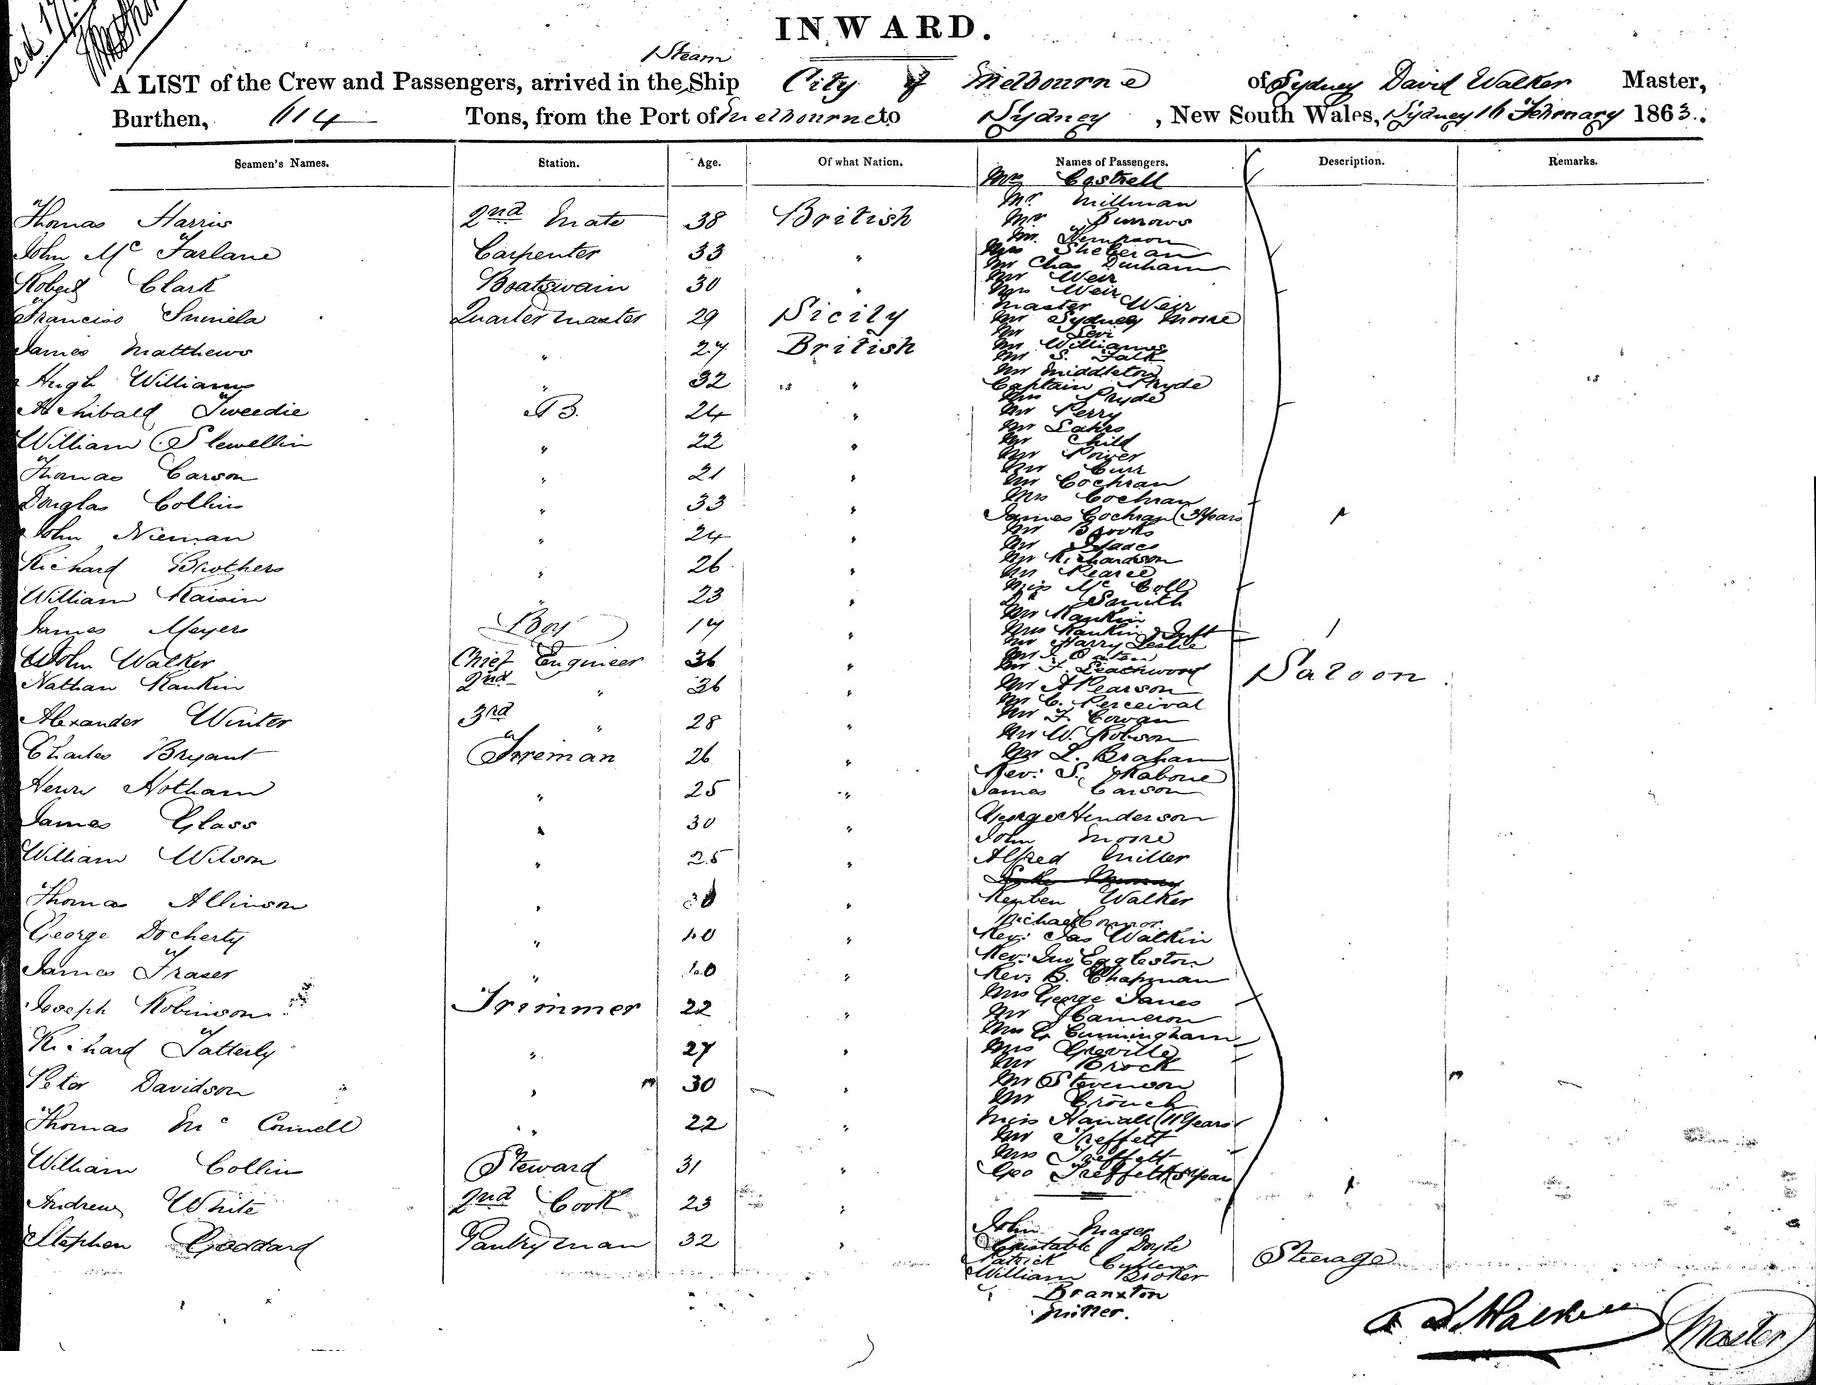 INWARD.
Steam
A LIST of the Crew and Passengers, arrived in the Ship City of Melbourne of Sydney David Walker Master,
Burthen, 614 Tons, from the Port of Melbourne to Sydney, New South Wales, Sydney 16 February 1863.
Seamen's Names. Station. Age. Of what Nation. Names of Passengers. Description. Remarks.
Thomas Harris 2nd Mate 38 British
John McFarlane Carpenter 33 "
Robert Clark Boatswain 30 "
Quartermaster 29 Sicily
James Matthews " 27 British
Hugh Williams " 32 "
Archibald Tweedie AB. 24 "
William Llewellin " 22 "
Thomas Carson " 21 "
Douglas Collins " 33 "
John Nieman " 24 "
Richard Brothers " 26 "
William Raisin " 23 "
James Meyers Boy 17 "
John Walker Chief Engineer 36 "
Nathan Rankin 2nd " 36 "
Alexander Winter 3rd " 28 "
Charles Bryant Fireman 26 "
Henry Hotham " 25 "
James Glass " 30 "
William Wilson " 25 "
Thomas Allinson " "
George Docherty " 40 "
James Fraser " 40 "
Joseph Robinson Trimmer 22 "
Richard Tatterly " 27 "
Peter Davidson " 30 "
Thomas McConnell " 22 "
William Collins Steward 31 "
Andrew White 2nd Cook 23 "
Stephen Goddard Pantryman 32 "
Mrs Costrell
Mr Millman
Mr Burrows
Mr Kempson
Mrs Sheeran
Mr Chas Durham
Mr Weir
Mrs Weir
Master Weir
Mr Sydney Moore
Mr Levi
Mr Williams
Mr S. Falk
Mr Middleton
Captain Pryde
Mrs Pryde
Mr Perry
Mr Lahrs
Mr Child
Mr Power
Mr Curr
Mr Cochran
Mrs Cochran
James Cochran (3 Years
Mr Brooks
Mr Isaacs
Mr Richardson
Mr Pearce
Miss McColl
Do Smith
Mr Rankin
Mrs Rankin & Inft
Mr Harry Leslie
Mr
Mr Leachwood
Mr A Pearson
Mr C. Perceival
Mr F. Cowan
Mr W. Robson
Mr L. Braham
Rev: S. Rabone
James Carson
George Henderson
John Moore
Alfred Miller
Reuben Walker
Michael Connor.
Rev: Jas Watkin
Rev: Jno Eggleston
Rev: B. Chapman
Mrs George Janes
Mr J Cameron
Mrs G Cunningham
Mrs Greville
Mr Brock
Mr Stevenson
Mr Crouch
Miss (11 Years
Mr Treffett
Mrs Treffett
Geo Treffett (5 Year
Saloon
John Mager
Constable Doyle
Patrick Cullen
William Broker
Branxton
Miller.
Steerage
D. Walker
Master